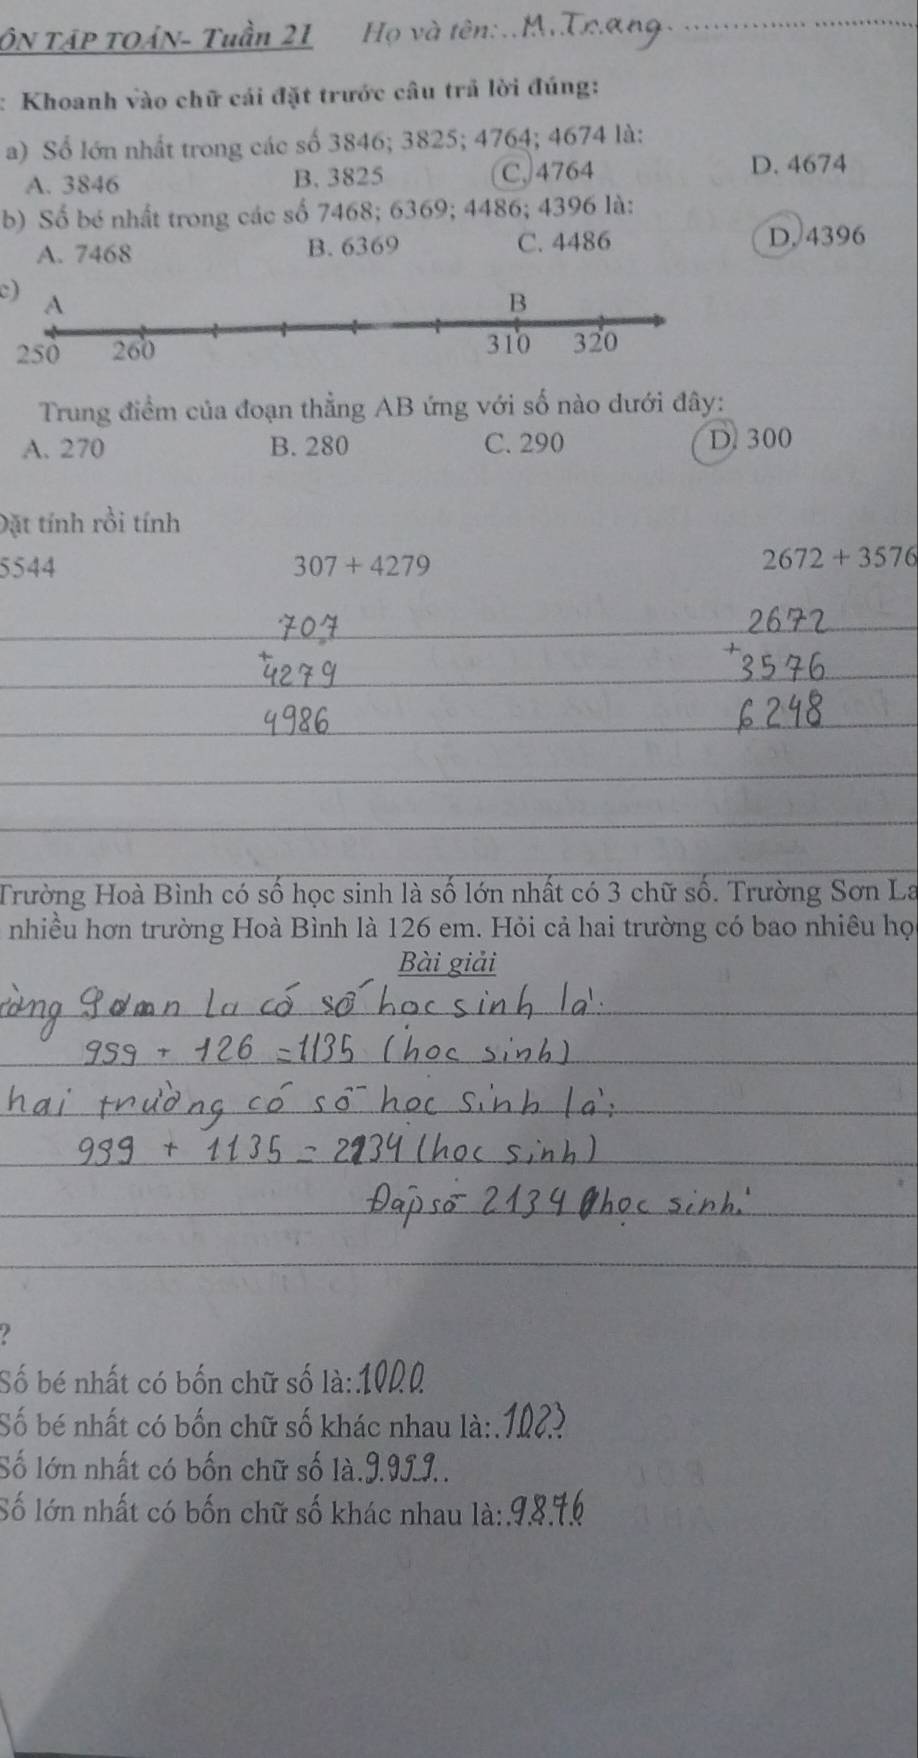 ÔN TẬP TOÁN- Tuần 21 Họ và tên: M. Trang
: Khoanh vào chữ cái đặt trước câu trả lời đúng:
a) Số lớn nhất trong các số 3846; 3825; 4764; 4674 là:
A. 3846 B. 3825 C. 4764 D. 4674
b) Số bé nhất trong các số 7468; 6369; 4486; 4396 là:
A. 7468 B. 6369 C. 4486 D. 4396
c)
A B
250 260 310 320
Trung điểm của đoạn thẳng AB ứng với số nào dưới đây:
A. 270 B. 280 C. 290 D. 300
Đặt tính rồi tính
5544 307 + 4279 2672 + 3576
707 2672
+ 4279 + 3576
4986 6248
Trường Hoà Bình có số học sinh là số lớn nhất có 3 chữ số. Trường Sơn La
nhiều hơn trường Hoà Bình là 126 em. Hỏi cả hai trường có bao nhiêu họ
Bài giải
La có số học sinh là:
999 + 126 = 1135 (hoc sinh)
hai trường có số học sinh là:
999 + 1135 = 2134 (hoc sinh)
Đáp số 2134 hoc sinh.
?
Số bé nhất có bốn chữ số là: 1000
Số bé nhất có bốn chữ số khác nhau là: 1023
Số lớn nhất có bốn chữ số là 9.999
Số lớn nhất có bốn chữ số khác nhau là: 9876